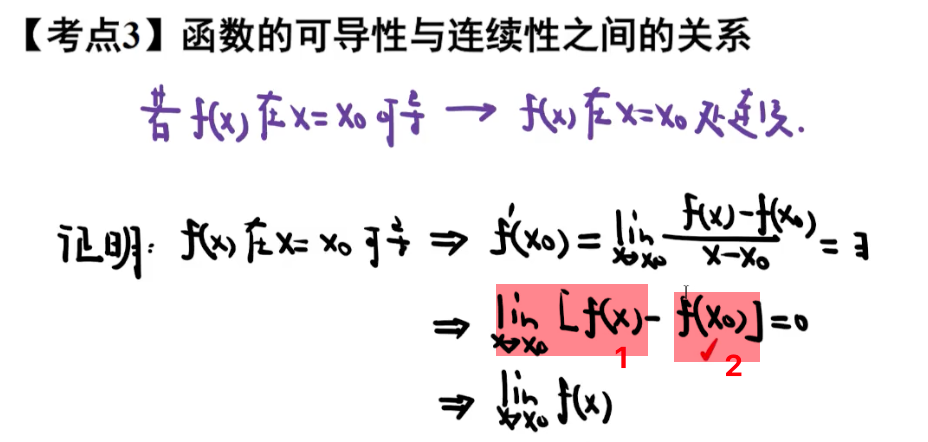 【考点3】函数的可导性与连续性之间的关系
若 f(x) 在 x=x₀ 可导 → f(x) 在 x=x₀ 处连续.
证明: f(x) 在 x=x₀ 可导 ⇒ f'(x₀) = lim_{x→x₀} \frac{f(x)-f(x₀)}{x-x₀} = ∃
⇒ lim_{x→x₀} [f(x)- f(x₀)]=0
1 ✓ 2
⇒ lim_{x→x₀} f(x)